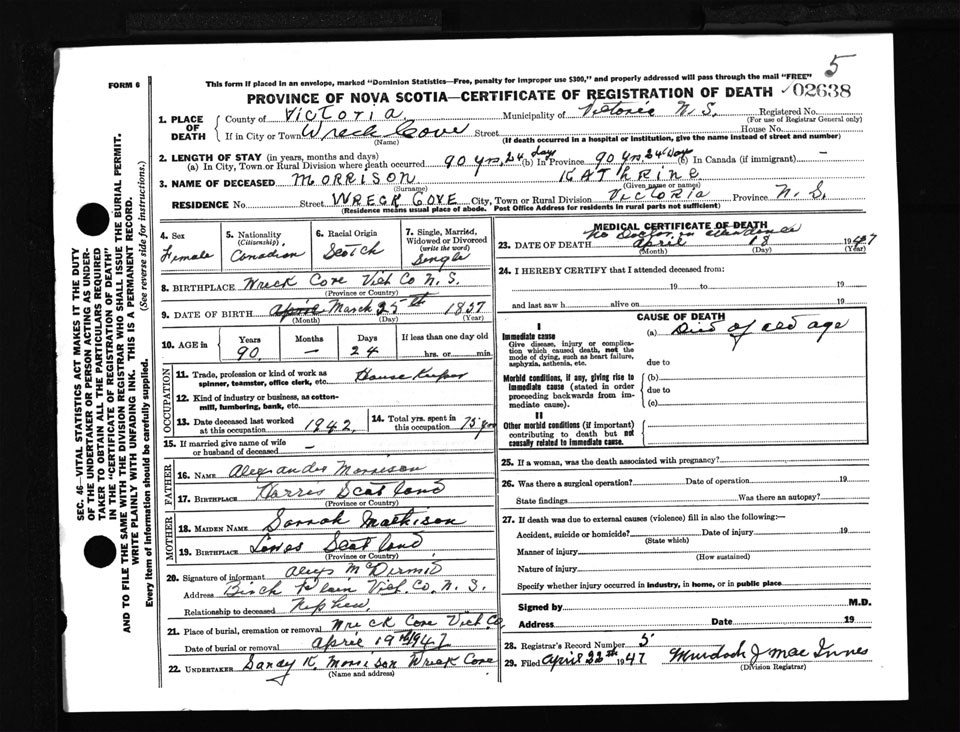 5
FORM 6
This form if placed in an envelope, marked "Dominion Statistics—Free, penalty for improper use $300," and properly addressed will pass through the mail "FREE"
PROVINCE OF NOVA SCOTIA—CERTIFICATE OF REGISTRATION OF DEATH 02638
1. PLACE OF DEATH
County of Victoria Municipality of Victoria N.S. Registered No.
(For use of Registrar General only)
If in City or Town Wreck Cove Street House No.
(Name) (If death occurred in a hospital or institution, give the name instead of street and number)
2. LENGTH OF STAY (in years, months and days)
(a) In City, Town or Rural Division where death occurred 90 yrs, 24 days (b) In Province 90 yrs 24 days (c) In Canada (if immigrant) —
3. NAME OF DECEASED MORRISON KATHRINE
(Surname) (Given name or names)
RESIDENCE No. Street WRECK COVE City, Town or Rural Division VICTORIA Province N.S.
(Residence means usual place of abode. Post Office Address for residents in rural parts not sufficient)
4. Sex
Female
5. Nationality
(Citizenship)
Canadian
6. Racial Origin
Scotch
7. Single, Married, Widowed or Divorced
(write the word)
Single
8. BIRTHPLACE Wreck Cove Vict Co N.S.
(Province or Country)
9. DATE OF BIRTH April March 25th 1857
(Month) (Day) (Year)
10. AGE in Years Months Days If less than one day old
90 — 24 hrs. or min.
OCCUPATION
11. Trade, profession or kind of work as spinner, teamster, office clerk, etc. House Keeper
12. Kind of industry or business, as cotton-mill, lumbering, bank, etc.
13. Date deceased last worked at this occupation 1942.
14. Total yrs. spent in this occupation 75 yrs
15. If married give name of wife or husband of deceased —
FATHER
16. NAME Alexander Morrison
17. BIRTHPLACE Harris Scotland
(Province or Country)
MOTHER
18. MAIDEN NAME Sarrah Mathison
19. BIRTHPLACE Lewes Scotland
(Province or Country)
20. Signature of informant McDirmid
Address Birch Plain Vict. Co. N.S.
Relationship to deceased Nephew.
21. Place of burial, cremation or removal Wreck Cove Vict Co
Date of burial or removal April 19th 1947
22. UNDERTAKER Sandy K. Morrison Wreck Cove
(Name and address)
MEDICAL CERTIFICATE OF DEATH
No Doctor in attendance
23. DATE OF DEATH April 18 1947
(Month) (Day) (Year)
24. I HEREBY CERTIFY that I attended deceased from:
19 to 19
and last saw h alive on 19
CAUSE OF DEATH
I
Immediate cause
Give disease, injury or complication which caused death, not the mode of dying, such as heart failure, asphyxia, asthenia, etc.
(a) Died of old age
due to
Morbid conditions, if any, giving rise to immediate cause (stated in order proceeding backwards from immediate cause).
(b)
due to
(c)
II
Other morbid conditions (if important) contributing to death but not causally related to immediate cause.
25. If a woman, was the death associated with pregnancy?
26. Was there a surgical operation? Date of operation 19
State findings Was there an autopsy?
27. If death was due to external causes (violence) fill in also the following:—
Accident, suicide or homicide? Date of injury 19
(State which)
Manner of injury
(How sustained)
Nature of injury
Specify whether injury occurred in industry, in home, or in public place
Signed by M.D.
Address Date 19
28. Registrar's Record Number 5
29. Filed April 22th 1947 Murdoch J Mac Innes
(Division Registrar)
SEC. 46—VITAL STATISTICS ACT MAKES IT THE DUTY
OF THE UNDERTAKER OR PERSON ACTING AS UNDER-
TAKER TO OBTAIN ALL THE PARTICULARS REQUIRED
IN THE "CERTIFICATE OF REGISTRATION OF DEATH"
AND TO FILE THE SAME WITH THE DIVISION REGISTRAR WHO SHALL ISSUE THE BURIAL PERMIT.
WRITE PLAINLY WITH UNFADING INK. THIS IS A PERMANENT RECORD.
Every item of information should be carefully supplied. (See reverse side for instructions.)